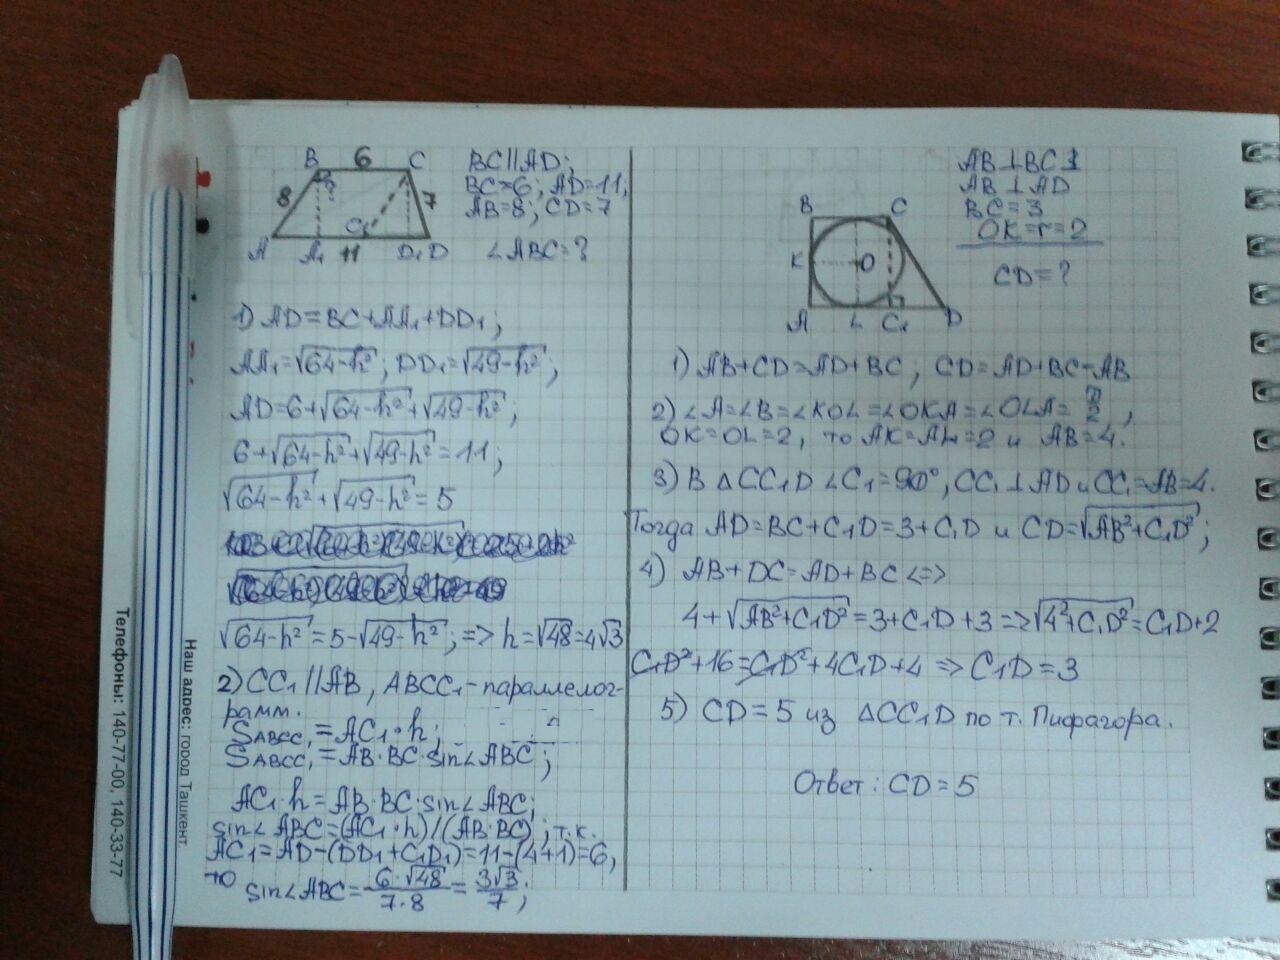 B 6 C
8 7
A A₁ 11 C₁ D₁ D
BC||AD;
BC=6; AD=11;
AB=8; CD=7
∠ABC=?
1) AD=BC+AA₁+DD₁;
AA₁=√(64-h²); DD₁=√(49-h²);
AD=6+√(64-h²)+√(49-h²);
6+√(64-h²)+√(49-h²)=11;
√(64-h²)+√(49-h²)=5
√(64-h²)=5-√(49-h²); => h=√48=4√3
2) CC₁||AB, ABCC₁-параллелог-
рамм.
SABCC₁=AC₁·h;
SABCC₁=AB·BC·sin∠ABC;
AC₁·h=AB·BC·sin∠ABC;
sin∠ABC=(AC₁·h)/(AB·BC), т.к.
AC₁=AD-(DD₁+C₁D₁)=11-(4+1)=6,
то sin∠ABC=6·√48/7·8=3√3/7;
AB⊥BC
AB⊥AD
BC=3
OK=r=2
CD=?
B C
K O
A L C₁ D
1) AB+CD=AD+BC; CD=AD+BC-AB
2) ∠A=∠B=∠KOL=∠OKA=∠OLA=π/2,
OK=OL=2, то AK=AL=2 и AB=4.
3) В △CC₁D ∠C₁=90°, CC₁⊥AD и CC₁=AB=4.
Тогда AD=BC+C₁D=3+C₁D и CD=√(AB²+C₁D²);
4) AB+DC=AD+BC<=>
4+√(AB²+C₁D²)=3+C₁D+3=>√(4²+C₁D²)=C₁D+2
C₁D²+16=C₁D²+4C₁D+4 => C₁D=3
5) CD=5 из △CC₁D по т. Пифагора.
Ответ: CD=5
Наш адрес: город Ташкент
Телефоны: 140-77-00, 140-33-77